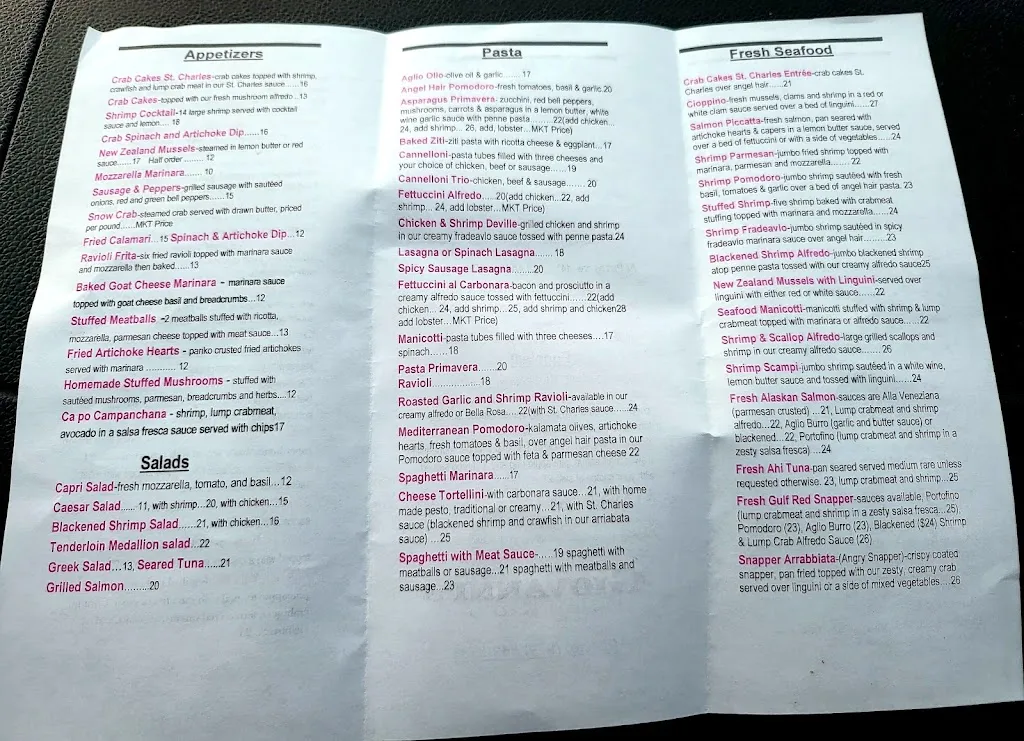 Appetizers
Crab Cakes St. Charles-crab cakes topped with shrimp,
crawfish and lump crab meat in our St. Charles sauce......16
Crab Cakes-topped with our fresh mushroom alfredo...13
Shrimp Cocktail-14 large shrimp served with cocktail
sauce and lemon.... 18
Crab Spinach and Artichoke Dip......16
New Zealand Mussels-steamed in lemon butter or red
sauce......17 Half order ......... 12
Mozzarella Marinara....... 10
Sausage & Peppers-grilled sausage with sautéed
onions, red and green bell peppers......15
Snow Crab-steamed crab served with drawn butter, priced
per pound......MKT Price
Fried Calamari...15 Spinach & Artichoke Dip...12
Ravioli Frita-six fried ravioli topped with marinara sauce
and mozzarella then baked......13
Baked Goat Cheese Marinara - marinara sauce
topped with goat cheese basil and breadcrumbs...12
Stuffed Meatballs -2 meatballs stuffed with ricotta,
mozzarella, parmesan cheese topped with meat sauce...13
Fried Artichoke Hearts - panko crusted fried artichokes
served with marinara ............ 12
Homemade Stuffed Mushrooms - stuffed with
sautéed mushrooms, parmesan, breadcrumbs and herbs...12
Ca po Campanchana - shrimp, lump crabmeat,
avocado in a salsa fresca sauce served with chips17
Salads
Capri Salad-fresh mozzarella, tomato, and basil...12
Caesar Salad......11, with shrimp...20, with chicken...15
Blackened Shrimp Salad......21, with chicken...16
Tenderloin Medallion salad...22
Greek Salad...13, Seared Tuna......21
Grilled Salmon.........20
Pasta
Aglio Olio-olive oil & garlic.......17
Angel Hair Pomodoro-fresh tomatoes, basil & garlic.20
Asparagus Primavera- zucchini, red bell peppers,
mushrooms, carrots & asparagus in a lemon butter, white
wine garlic sauce with penne pasta.........22(add chicken...
24, add shrimp... 26, add, lobster...MKT Price)
Baked Ziti-ziti pasta with ricotta cheese & eggplant...17
Cannelloni-pasta tubes filled with three cheeses and
your choice of chicken, beef or sausage......19
Cannelloni Trio-chicken, beef & sausage....... 20
Fettuccini Alfredo.....20(add chicken...22, add
shrimp... 24, add lobster...MKT Price)
Chicken & Shrimp Deville-grilled chicken and shrimp
in our creamy fradeavlo sauce tossed with penne pasta.24
Lasagna or Spinach Lasagna....... 18
Spicy Sausage Lasagna.......20
Fettuccini al Carbonara-bacon and prosciutto in a
creamy alfredo sauce tossed with fettuccini......22(add
chicken... 24, add shrimp...25, add shrimp and chicken28
add lobster...MKT Price)
Manicotti-pasta tubes filled with three cheeses....17
spinach......18
Pasta Primavera........20
Ravioli...............18
Roasted Garlic and Shrimp Ravioli-available in our
creamy alfredo or Bella Rosa.... 22(with St. Charles sauce.....24
Mediterranean Pomodoro-kalamata olives, artichoke
hearts, fresh tomatoes & basil, over angel hair pasta in our
Pomodoro sauce topped with feta & parmesan cheese 22
Spaghetti Marinara......17
Cheese Tortellini-with carbonara sauce...21, with home
made pesto, traditional or creamy...21, with St. Charles
sauce (blackened shrimp and crawfish in our arriabata
sauce) ...25
Spaghetti with Meat Sauce-.....19 spaghetti with
meatballs or sausage...21 spaghetti with meatballs and
sausage...23
Fresh Seafood
Crab Cakes St. Charles Entrée-crab cakes St.
Charles over angel hair.....21
Cioppino-fresh mussels, clams and shrimp in a red or
white clam sauce served over a bed of linguini......27
Salmon Piccatta-fresh salmon, pan seared with
artichoke hearts & capers in a lemon butter sauce, served
over a bed of fettuccini or with a side of vegetables....24
Shrimp Parmesan-jumbo fried shrimp topped with
marinara, parmesan and mozzarella....... 22
Shrimp Pomodoro-jumbo shrimp sautéed with fresh
basil, tomatoes & garlic over a bed of angel hair pasta. 23
Stuffed Shrimp-five shrimp baked with crabmeat
stuffing topped with marinara and mozzarella.....24
Shrimp Fradeavlo-jumbo shrimp sautéed in spicy
fradeavlo marinara sauce over angel hair.........23
Blackened Shrimp Alfredo-jumbo blackened shrimp
atop penne pasta tossed with our creamy alfredo sauce25
New Zealand Mussels with Linguini-served over
linguini with either red or white sauce......22
Seafood Manicotti-manicotti stuffed with shrimp & lump
crabmeat topped with marinara or alfredo sauce......22
Shrimp & Scallop Alfredo-large grilled scallops and
shrimp in our creamy alfredo sauce...... 26
Shrimp Scampi-jumbo shrimp sautéed in a white wine,
lemon butter sauce and tossed with linguini.....24
Fresh Alaskan Salmon-sauces are Alla Veneziana
(parmesan crusted) ...21, Lump crabmeat and shrimp
alfredo...22, Aglio Burro (garlic and butter sauce) or
blackened...22, Portofino (lump crabmeat and shrimp in a
zesty salsa fresca) ...24
Fresh Ahi Tuna-pan seared served medium rare unless
requested otherwise. 23, lump crabmeat and shrimp...25
Fresh Gulf Red Snapper-sauces available, Portofino
(lump crabmeat and shrimp in a zesty salsa fresca...25),
Pomodoro (23), Aglio Burro (23), Blackened ($24) Shrimp
& Lump Crab Alfredo Sauce (26)
Snapper Arrabbiata-(Angry Snapper)-crispy coated
snapper, pan fried topped with our zesty, creamy crab,
served over linguini or a side of mixed vegetables....26